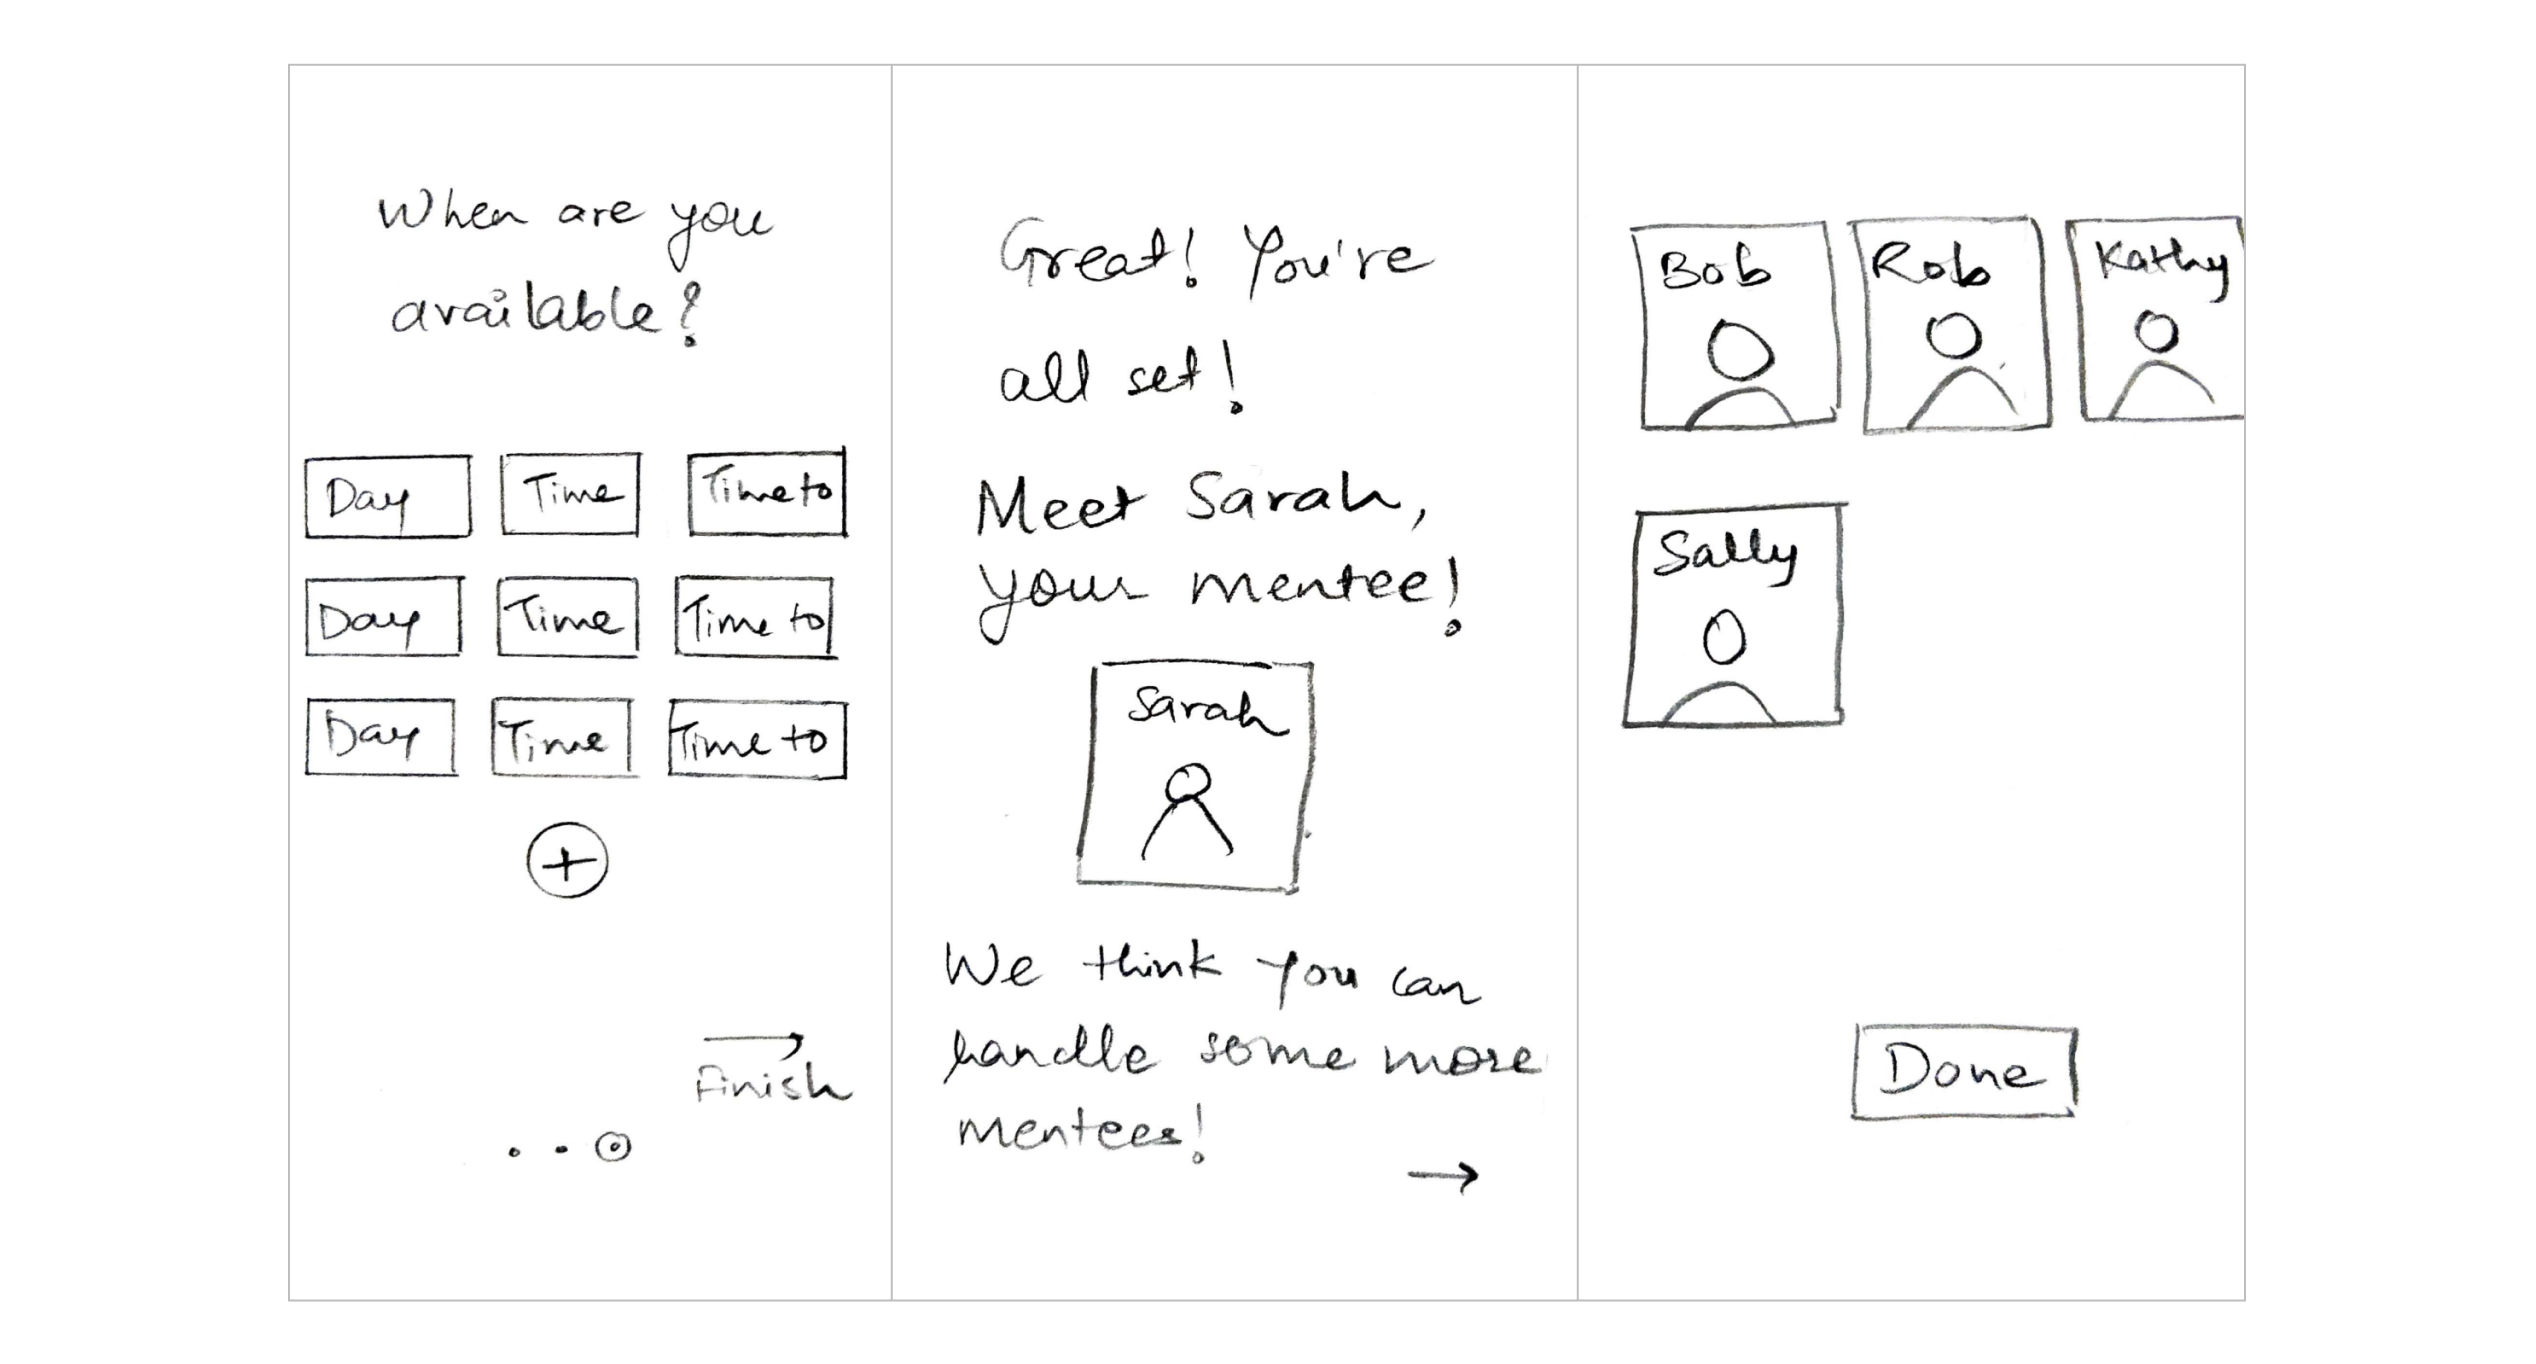 When are you
available?
Day Time Time to
Day Time Time to
Day Time Time to
+
Finish
Great! You're
all set!
Meet Sarah,
your mentee!
Sarah
We think you can
handle some more
mentees!
Bob Rob Kathy
Sally
Done